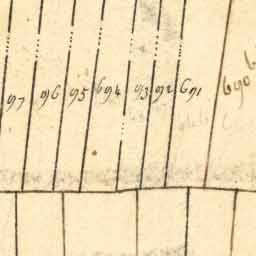 97 96 95 694 93 92 691 690